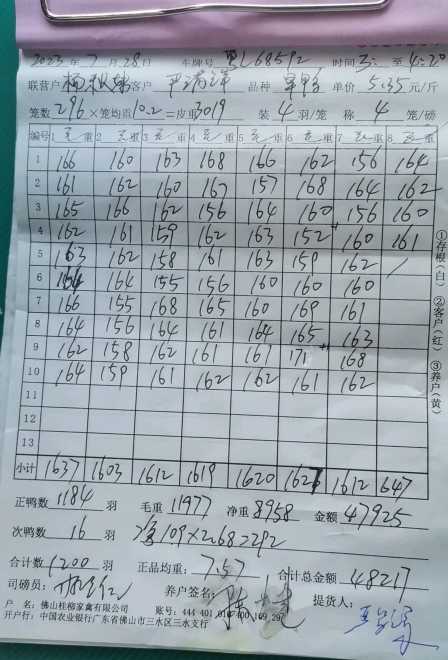 2023年7月28日 车牌号 L68592 时间 3: 至 4:20
联营户 客户 品种 单价 5.35 元/斤
笼数 296 ×笼均重 10.2 =皮重 3019 装 4 羽/笼 称 4 笼/磅
编号 1 毛 重 2 毛 重 3 毛 重 4 毛 重 5 毛 重 6 毛 重 7 毛 重 8 毛 重
1 166 160 163 168 166 162 156 164
2 161 162 160 167 157 168 164 162
3 165 166 162 156 164 160 156 160
4 162 161 159 162 163 152 160 161
5 163 162 158 161 163 159 162
6 164 164 155 156 160 160 160
7 166 155 168 165 160 169 161
8 164 156 164 161 164 165 163
9 162 158 162 161 161 171 168
10 164 159 161 162 162 161 162
11
12
13
小计 1637 1603 1612 1619 1620 1627 1612 647
①存根(白) ②客户(红) ③养户(黄)
正鸭数 1184 羽 毛重 11977 净重 8958 金额 47925
次鸭数 16 羽 109×2.68=292
合计数 1200 羽 正品均重: 7.57 合计总金额 48217
司磅员: 养户签名: 提货人:
户 名: 佛山桂柳家禽有限公司 账号: 444 401 010 400 169 297
开户行: 中国农业银行广东省佛山市三水区三水支行